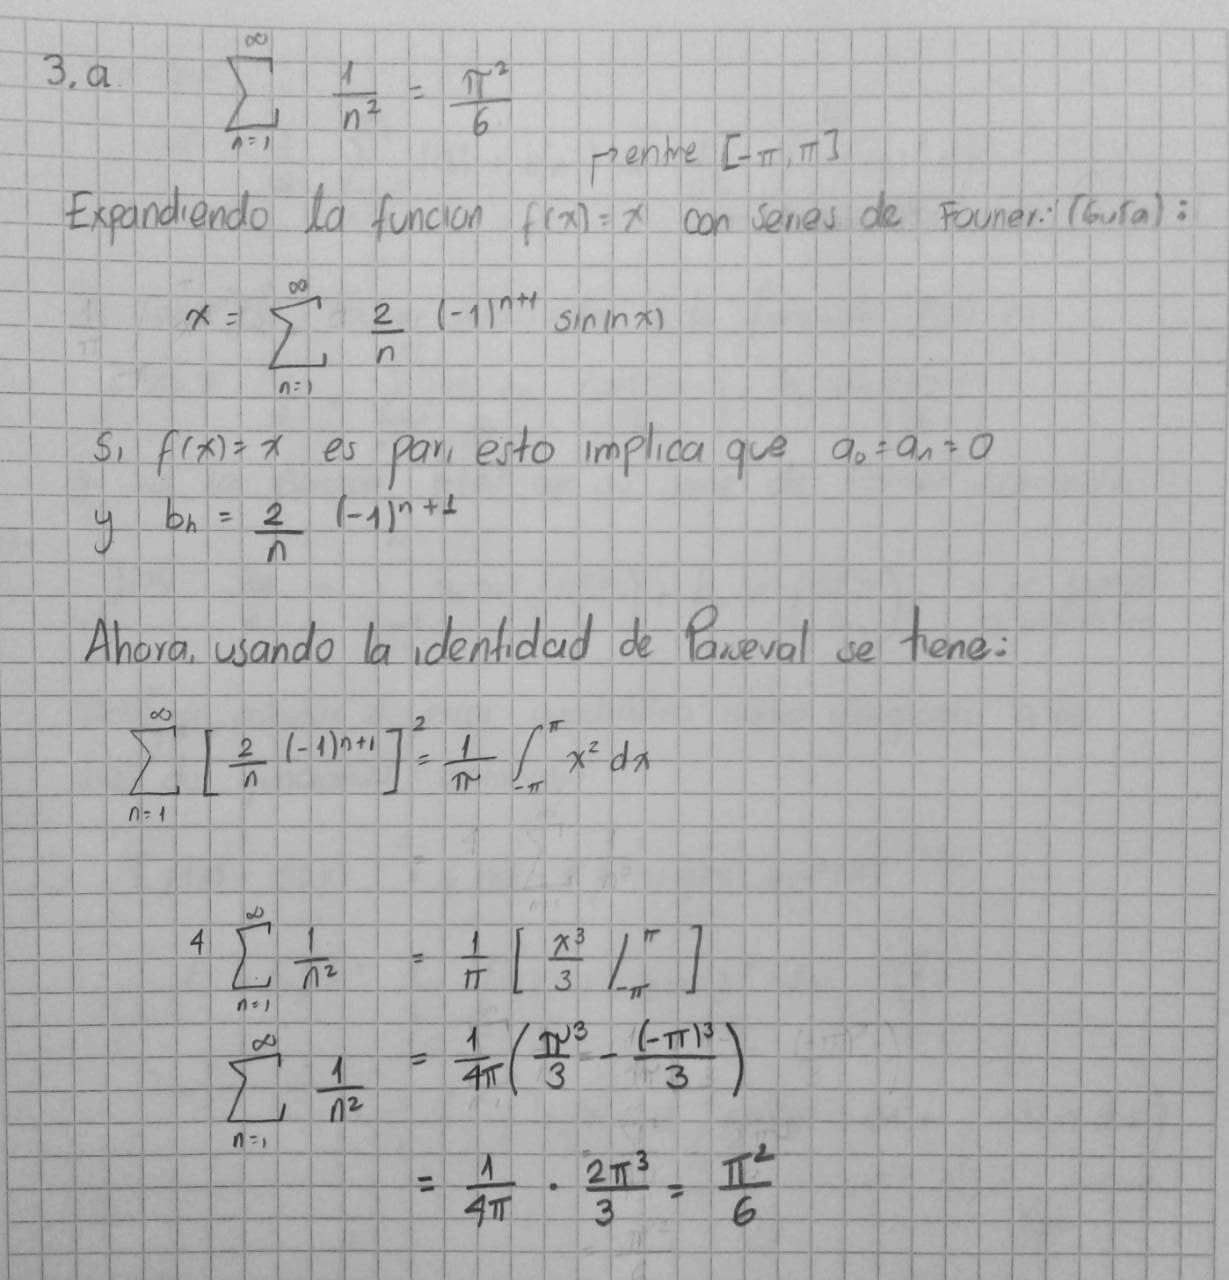 3.a ∑_{n=1}^{∞} 1/n² = π²/6
↱ entre [-π, π]
Expandiendo la funcion f(x)=x con series de Fourier: (Guía):
x = ∑_{n=1}^{∞} 2/n (-1)^{n+1} sin(nx)
Si f(x)=x es par, esto implica que a₀=aₙ=0
y bₙ = 2/n (-1)^{n+1}
Ahora, usando la identidad de Parseval se tiene:
∑_{n=1}^{∞} [2/n (-1)^{n+1}]² = 1/π ∫_{-π}^{π} x² dx
4 ∑_{n=1}^{∞} 1/n² = 1/π [x³/3 |_{-π}^{π}]
∑_{n=1}^{∞} 1/n² = 1/4π (π³/3 - (-π)³/3)
= 1/4π · 2π³/3 = π²/6